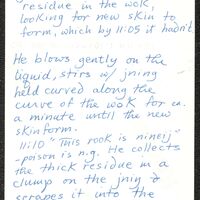 residue in the wok,
looking for new skin to
form, which by 11:05 it hadn't.
He blows gently on the
liquid, stirs w/ jning
held curved along the
curve of the wok for ca.
a minute until the new
skin form.
11:10 "This rook is nineij"
- poison is n.g. He collects
the thick residue in a
clump on the jnin &
scrapes it into the